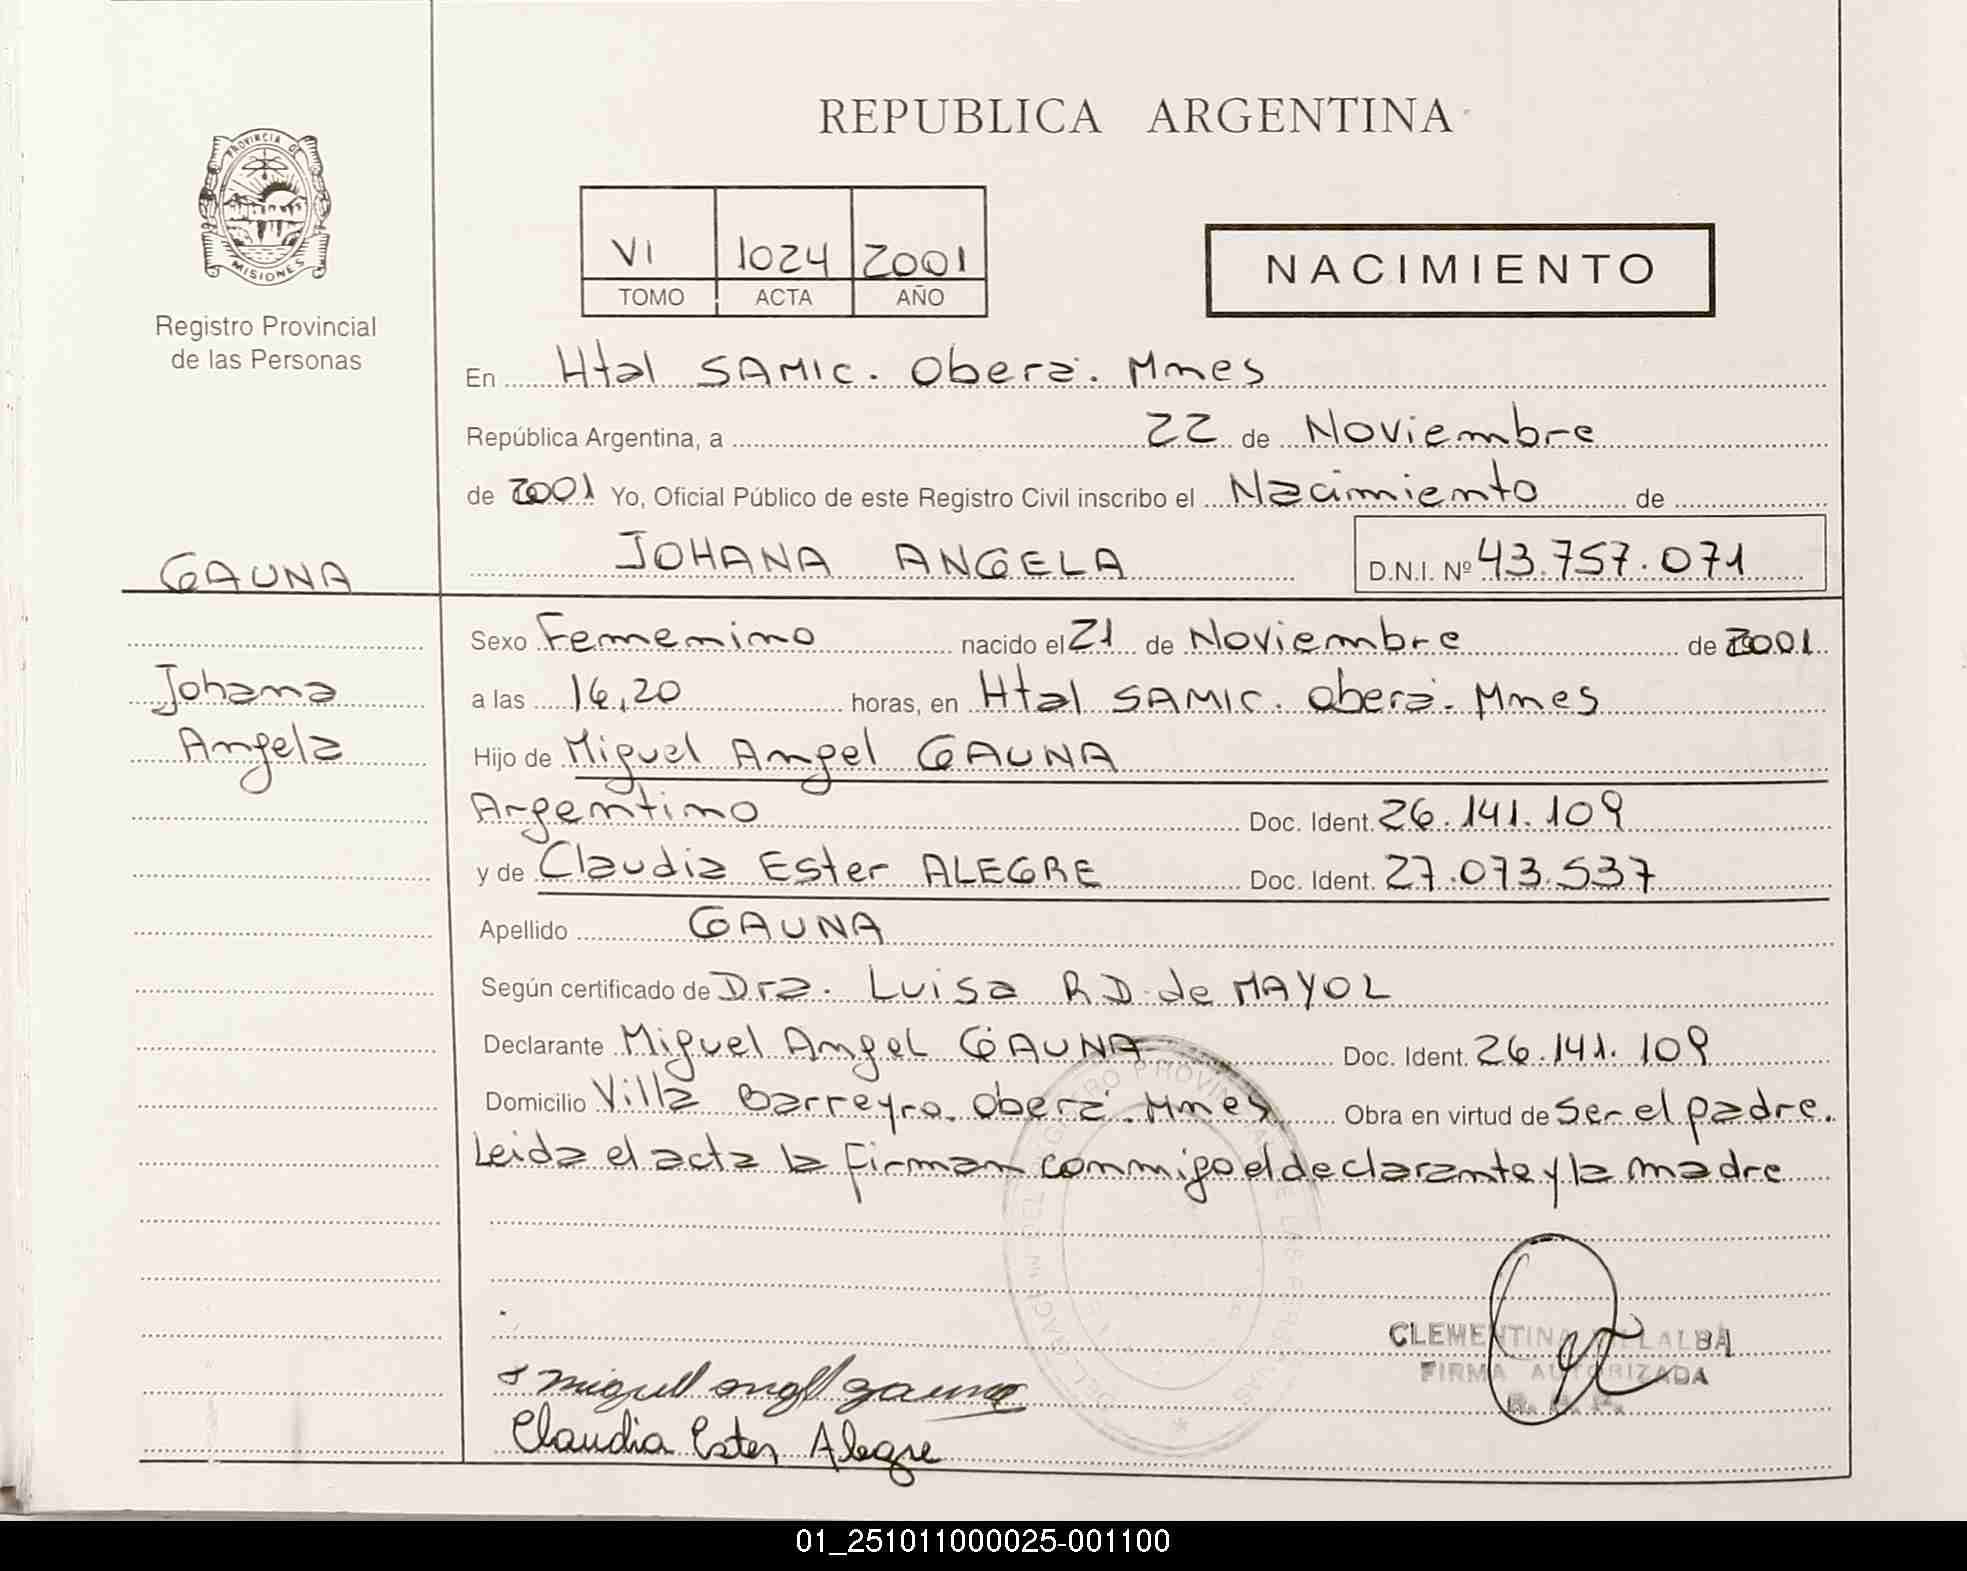 REPUBLICA ARGENTINA
PROVINCIA DE
MISIONES
Registro Provincial
de las Personas
VI 1024 2001
TOMO ACTA AÑO
NACIMIENTO
En Htal SAMIC. Oberá. Mnes
República Argentina, a 22 de Noviembre
de 2001 Yo, Oficial Público de este Registro Civil inscribo el Nacimiento de
JOHANA ANGELA D.N.I. Nº 43.757.071
GAUNA
Johana
Angela
Sexo Femenino nacido el 21 de Noviembre de 2001
a las 16,20 horas, en Htal SAMIC. Oberá. Mnes
Hijo de Miguel Angel GAUNA
Argentino Doc. Ident. 26.141.109
y de Claudia Ester ALEGRE Doc. Ident. 27.073.537
Apellido GAUNA
Según certificado de Dra. Luisa R D de MAYOL
Declarante Miguel Angel GAUNA Doc. Ident. 26.141.109
Domicilio Villa Barreyro. Oberá. Mnes Obra en virtud de ser el padre.
Leida el acta la firman conmigo el declarante y la madre
CLEMENTINA
FIRMA AUTORIZADA
miguel angel gauna
Claudia Ester Alegre
01_251011000025-001100